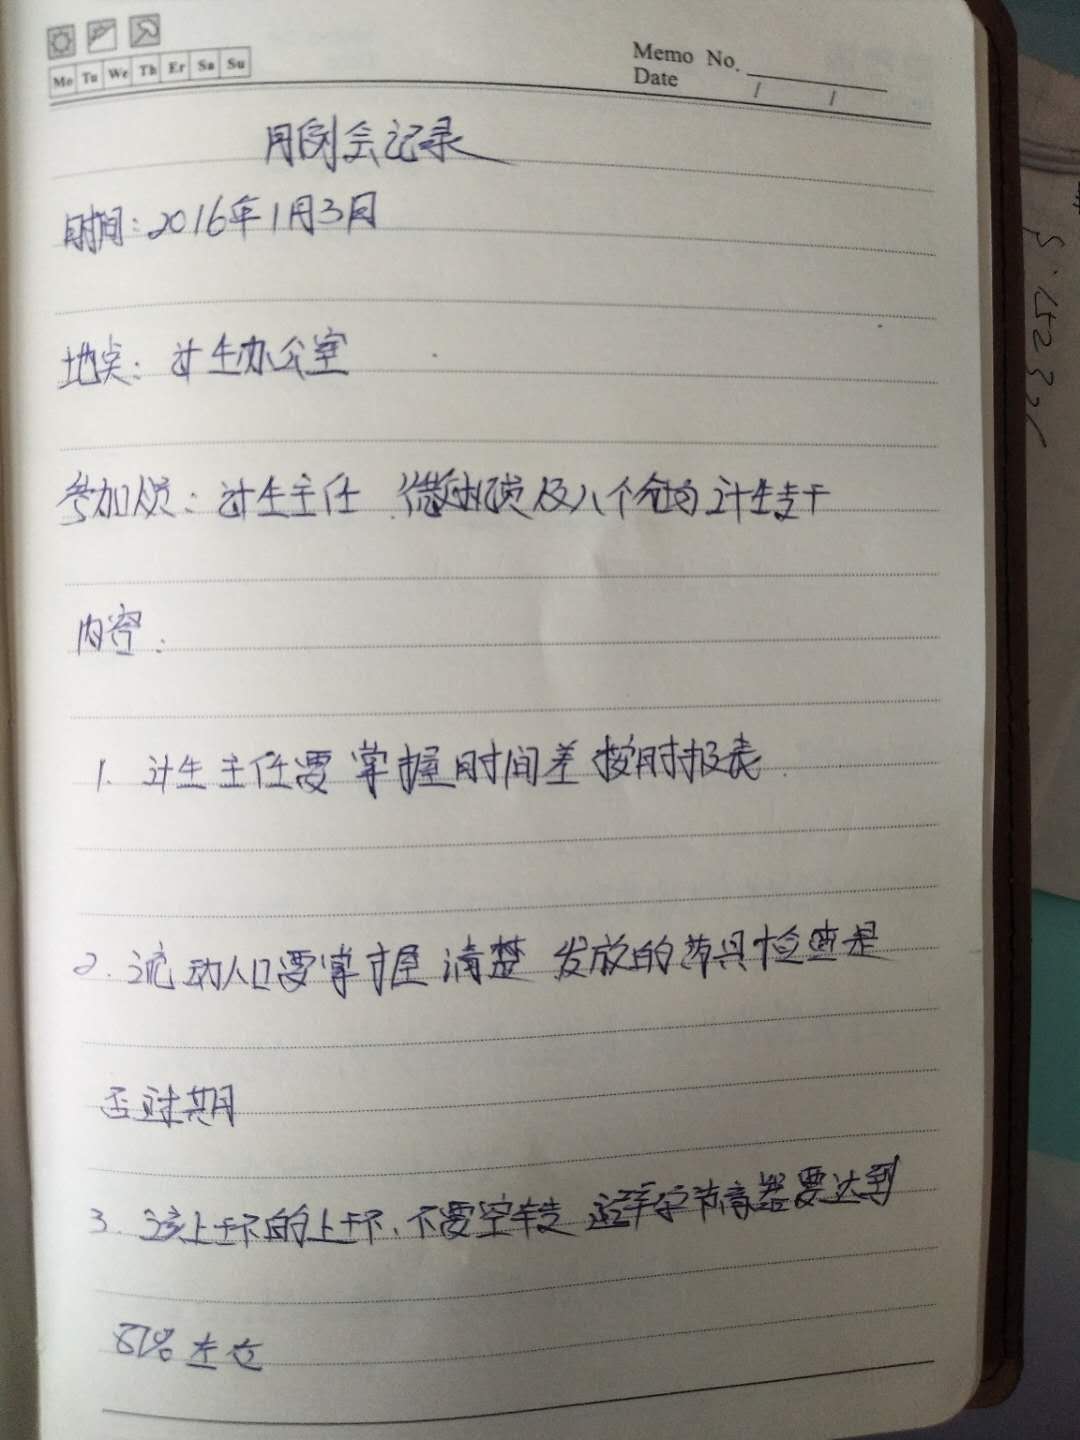 Mo Tu We Th Fr Sa Su
Memo No.
Date / /
月例会记录
时间：2016年1月3日
地点：计生办公室
参加人员：计生主任、微机员及八个包片计生专干
内容：
1. 计生主任要掌握时间差 按时报表
2. 流动人口要掌握清楚 发放的药具检查是
否过期
3. 该上环的上环，不要空转 避孕节育器要达到
81%左右